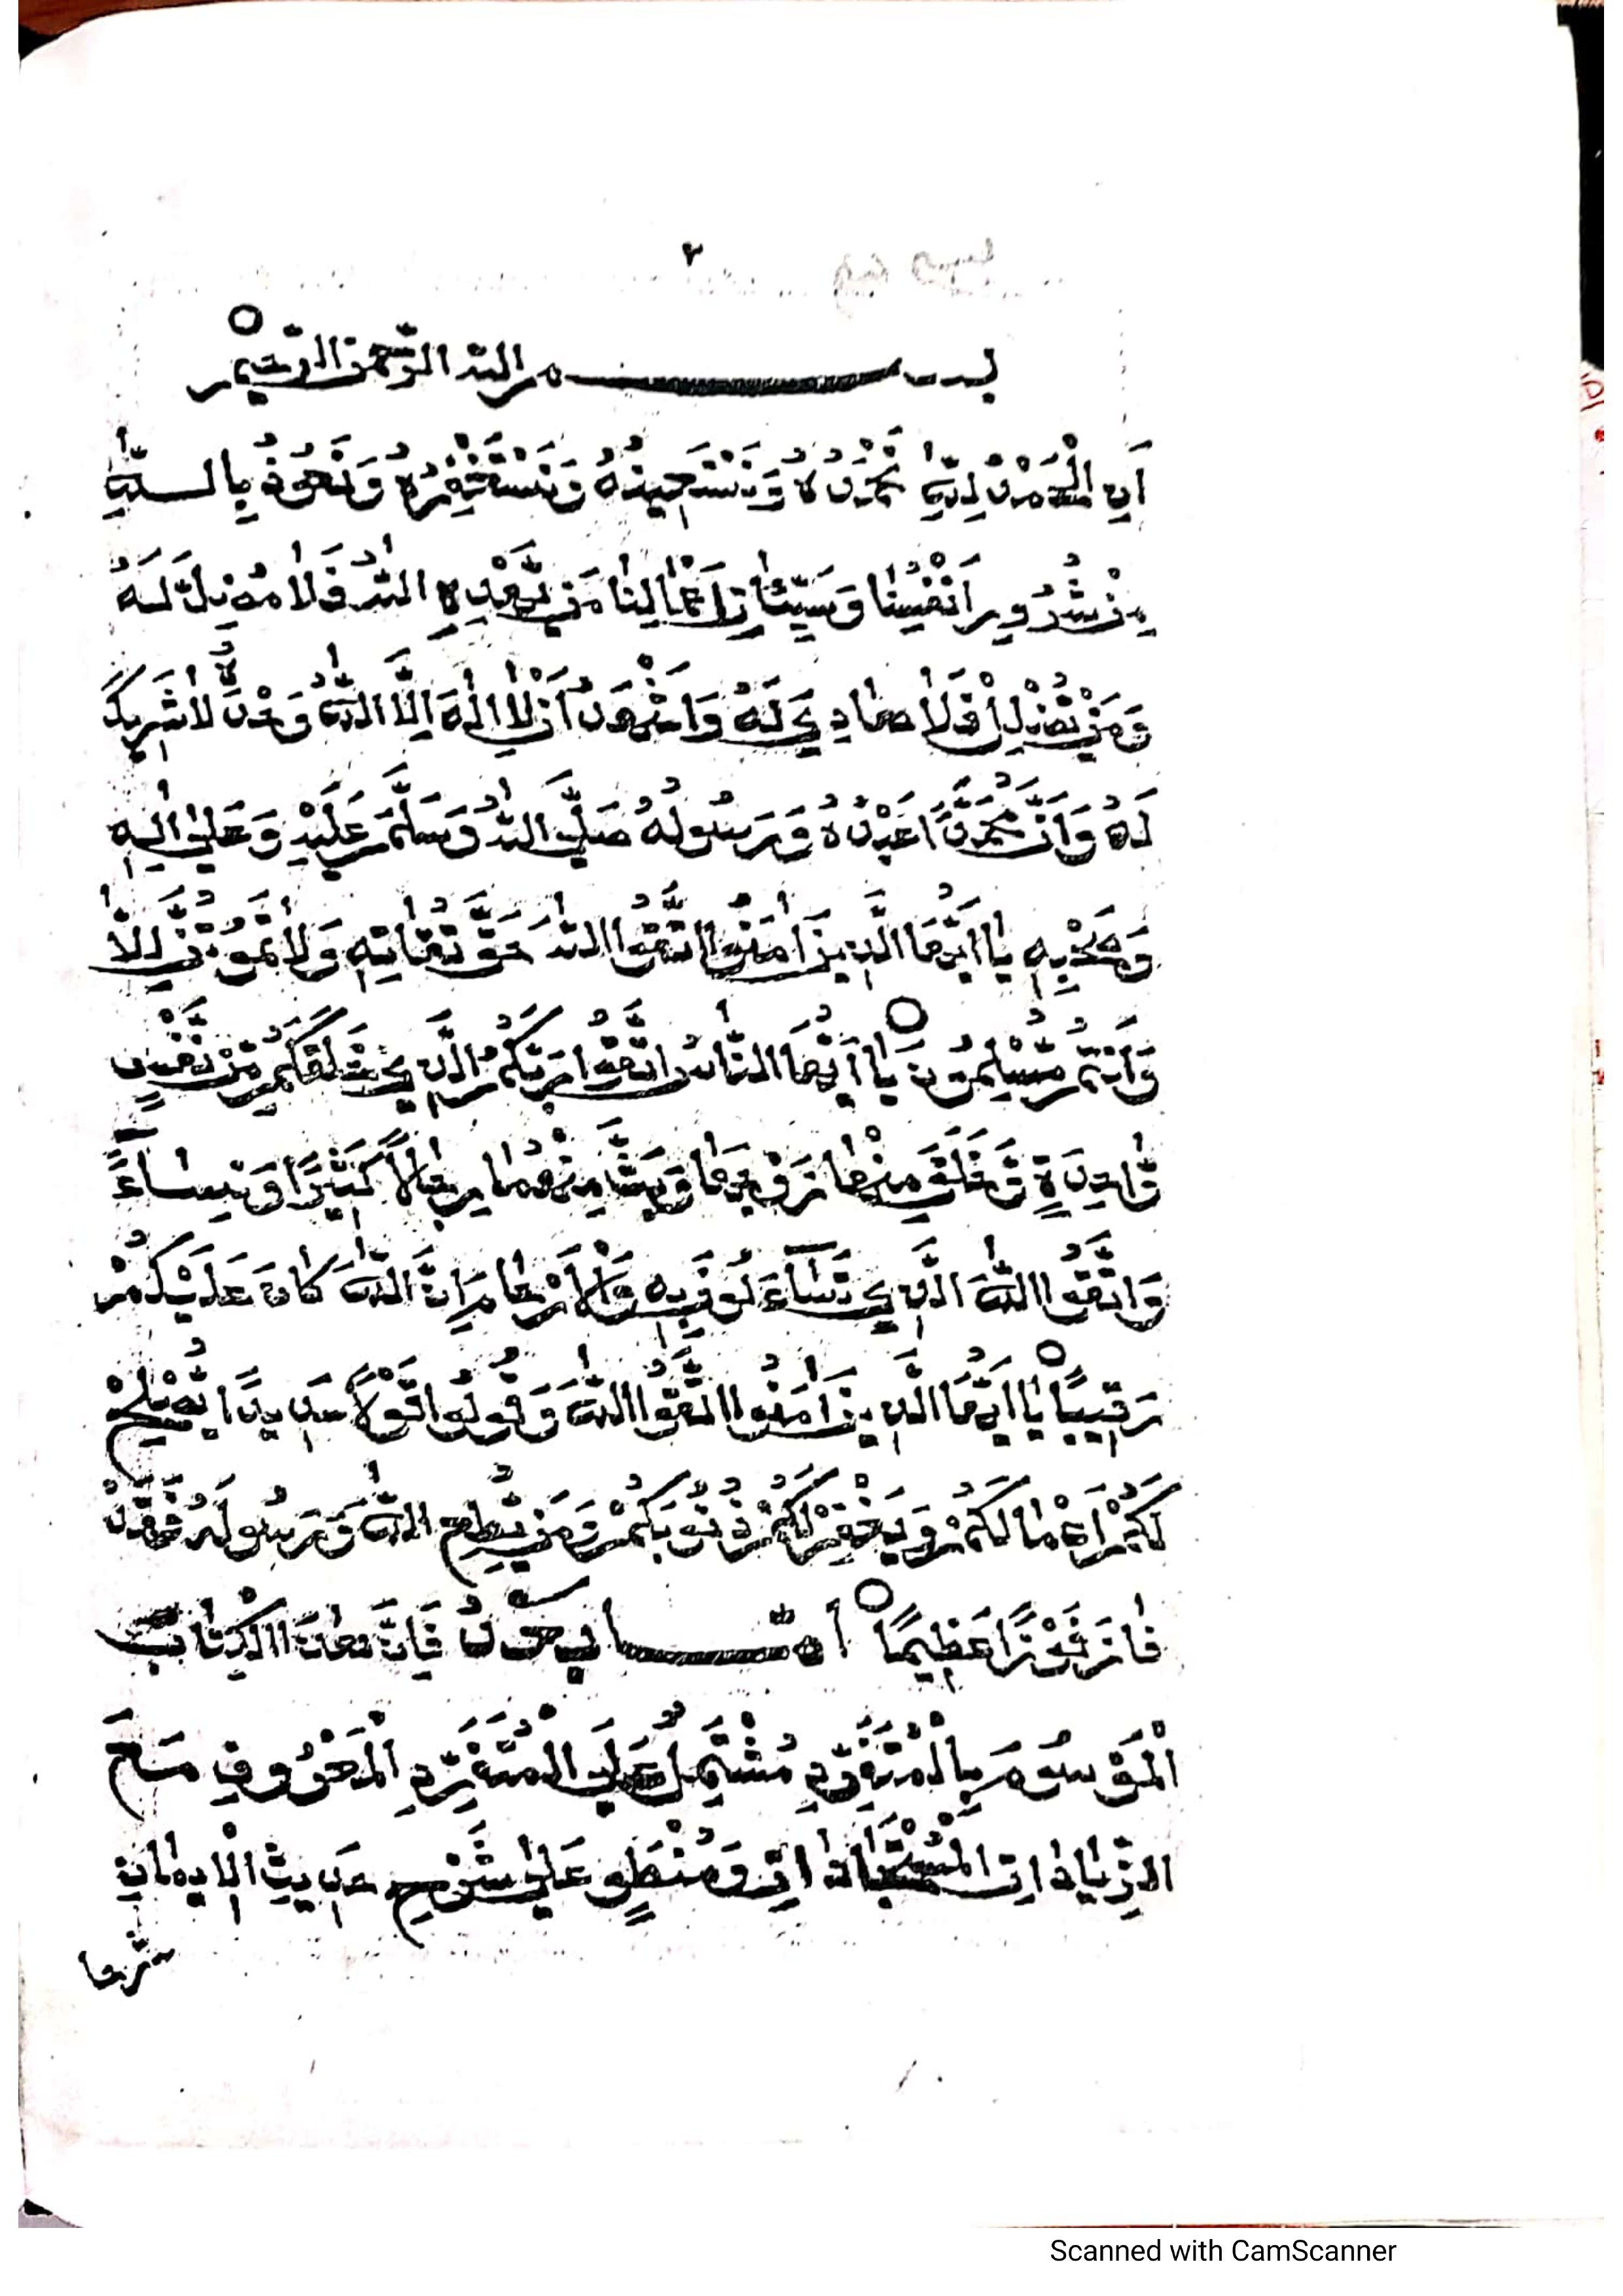 ٢
بسم الله الرحمن الرحيم
اَنِ الْحَمْدُ لِلّٰهِ نَحْمَدُهُ وَنَسْتَعِينُهُ وَنَسْتَغْفِرُهُ وَنَعُوذُ بِاللّٰهِ
مِنْ شُرُورِ اَنْفُسِنَا وَسَيِّئَاتِ اَعْمَالِنَا مَنْ يَّهْدِهِ اللّٰهُ فَلَا مُضِلَّ لَهُ
وَمَنْ يُّضْلِلْ فَلَا هَادِيَ لَهُ وَاَشْهَدُ اَنْ لَّا اِلٰهَ اِلَّا اللّٰهُ وَحْدَهُ لَا شَرِيكَ
لَهُ وَاَنَّ مُحَمَّدًا عَبْدُهُ وَرَسُولُهُ صَلَّى اللّٰهُ وَسَلَّمَ عَلَيْهِ وَعَلٰى اٰلِهِ
وَصَحْبِهِ يَا اَيُّهَا الَّذِينَ اٰمَنُوا اتَّقُوا اللّٰهَ حَقَّ تُقَاتِهِ وَلَا تَمُوتُنَّ اِلَّا
وَاَنْتُمْ مُّسْلِمُونَ يَا اَيُّهَا النَّاسُ اتَّقُوا رَبَّكُمُ الَّذِي خَلَقَكُمْ مِّنْ نَّفْسٍ
وَّاحِدَةٍ وَّخَلَقَ مِنْهَا زَوْجَهَا وَبَثَّ مِنْهُمَا رِجَالًا كَثِيْرًا وَّنِسَاءً
وَاتَّقُوا اللّٰهَ الَّذِي تَسَاءَلُونَ بِهِ وَالْاَرْحَامَ اِنَّ اللّٰهَ كَانَ عَلَيْكُمْ
رَقِيبًا يَا اَيُّهَا الَّذِينَ اٰمَنُوا اتَّقُوا اللّٰهَ وَقُولُوا قَوْلًا سَدِيدًا يُّصْلِحْ
لَكُمْ اَعْمَالَكُمْ وَيَغْفِرْ لَكُمْ ذُنُوبَكُمْ وَمَنْ يُّطِعِ اللّٰهَ وَرَسُولَهُ فَقَدْ
فَازَ فَوْزًا عَظِيمًا اَمَّا بَعْدُ فَاِنَّ هٰذَا الْكِتَابَ
الْمَوْسُومَ بِالْمُتَفَرِّدِ مُشْتَمِلٌ عَلَى الْمُتَفَرِّدِ الْمَعْرُوفِ مَعَ
الزِّيَادَاتِ الْمُسْتَجَادَاتِ وَمُنْطَوٍ عَلٰى شَرْحِ حَدِيثِ الْاِيمَانِ